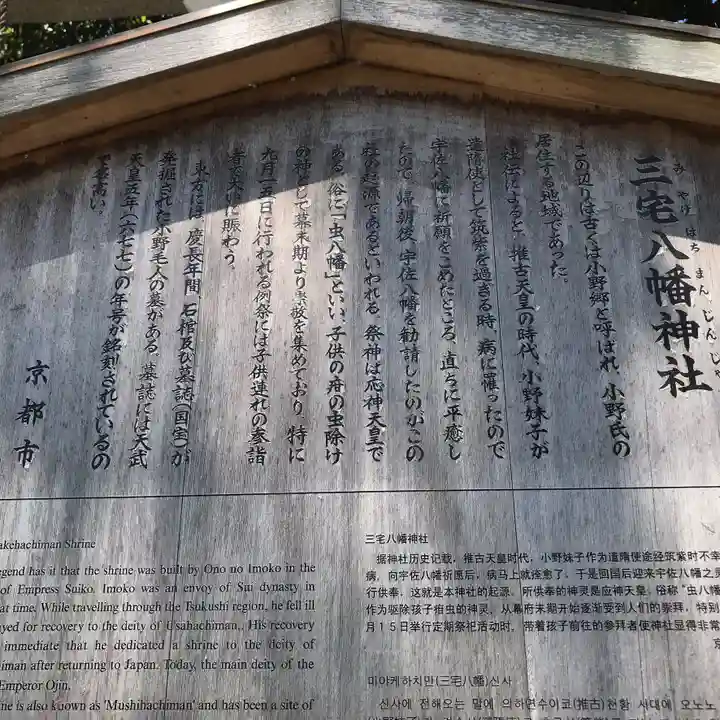 三宅八幡神社
みやけはちまんじんじゃ
この辺りは古くは小野郷と呼ばれ、小野氏の
居住する地域であった。
社伝によると、推古天皇の時代、小野妹子が
遣隋使として筑紫を過ぎる時、病に罹ったので
宇佐八幡に祈願をこめたところ、直ちに平癒し
たので、帰朝後、宇佐八幡を勧請したのがこの
社の起源であるといわれる。祭神は応神天皇で
ある。俗に「虫八幡」といい、子供の疳の虫除け
の神として幕末期より崇敬を集めており、特に
九月一五日に行われる例祭には子供連れの参詣
者で大いに賑わう。
東方には、慶長年間、石棺及び墓誌(国宝)が
発掘された小野毛人の墓がある。墓誌には天武
天皇五年(六七七)の年号が銘刻されているの
で名高い。
京都市
akehachiman Shrine
egend has it that the shrine was built by Ono no Imoko in the
of Empress Suiko. Imoko was an envoy of Sui dynasty in
at time. While travelling through the Tsukushi region, he fell ill
yed for recovery to the deity of Usahachiman,. His recovery
immediate that he dedicated a shrine to the deity of
himan after returning to Japan. Today, the main deity of the
Emperor Ojin.
ne is also known as 'Mushihachiman' and has been a site of
三宅八幡神社
据神社历史记载，推古天皇时代，小野妹子作为遣隋使途经筑紫时不幸
病，向宇佐八幡祈愿后，病马上就痊愈了。于是回国后迎来宇佐八幡之灵
行供奉，这就是本神社的起源。所供奉的神灵是应神天皇。俗称“虫八幡
作为驱除孩子疳虫的神灵，从幕府末期开始逐渐受到人们的崇拜，特别
月15日举行定期祭祀活动时，带着孩子前往的参拜者使神社显得非常
京
미야케하치만(三宅八幡)신사
신사에 전해오는 말에 의하면 수이코(推古)천황 시대에 오노노